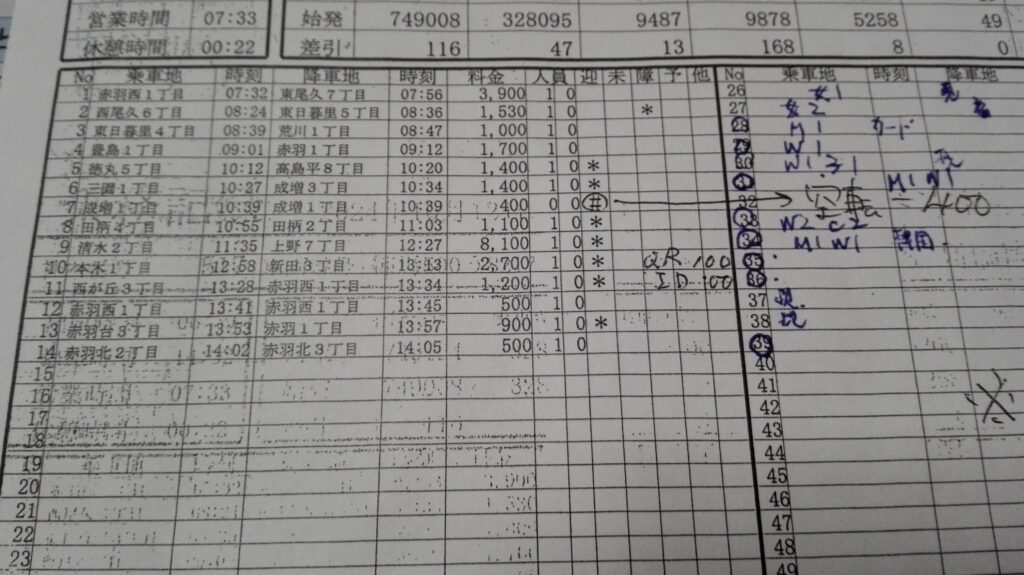 営業時間 07:33 始発 749008 328095 9487 9878 5258 49
休憩時間 00:22 差引 116 47 13 168 8 0
No 乗車地 時刻 降車地 時刻 料金 人員 迎 未 障 予 他 No 乗車地 時刻 降車地
1 赤羽西1丁目 07:32 東尾久7丁目 07:56 3,900 1 0 26
2 西尾久6丁目 08:24 東日暮里5丁目 08:36 1,530 1 0 * 27
3 東日暮里4丁目 08:39 荒川1丁目 08:47 1,000 1 0 28 M1 カード
4 豊島1丁目 09:01 赤羽1丁目 09:12 1,700 1 0 29 W1
5 徳丸5丁目 10:12 高島平8丁目 10:20 1,400 1 0 * 30
6 三園1丁目 10:27 成増3丁目 10:34 1,400 1 0 * 31 M1 W1
7 成増1丁目 10:39 成増1丁目 10:39 400 0 0 * 32 空車 400
8 田柄4丁目 10:55 田柄2丁目 11:03 1,100 1 0 * 33 W2 C2
9 清水2丁目 11:35 上野7丁目 12:27 8,100 1 0 * 34 M1 W1
10 本木1丁目 12:58 新田3丁目 13:13 2,700 1 0 * QR 100 35
11 西が丘3丁目 13:28 赤羽西1丁目 13:34 1,200 1 0 * ID 100 36
12 赤羽西1丁目 13:41 赤羽西1丁目 13:45 500 1 0 37
13 赤羽台3丁目 13:53 赤羽1丁目 13:57 900 1 0 * 38
14 赤羽北2丁目 14:02 赤羽北3丁目 14:05 500 1 0 39
15 40
16 41
17 42
18 43
19 44
20 45
21 46
22 47
23 48
49